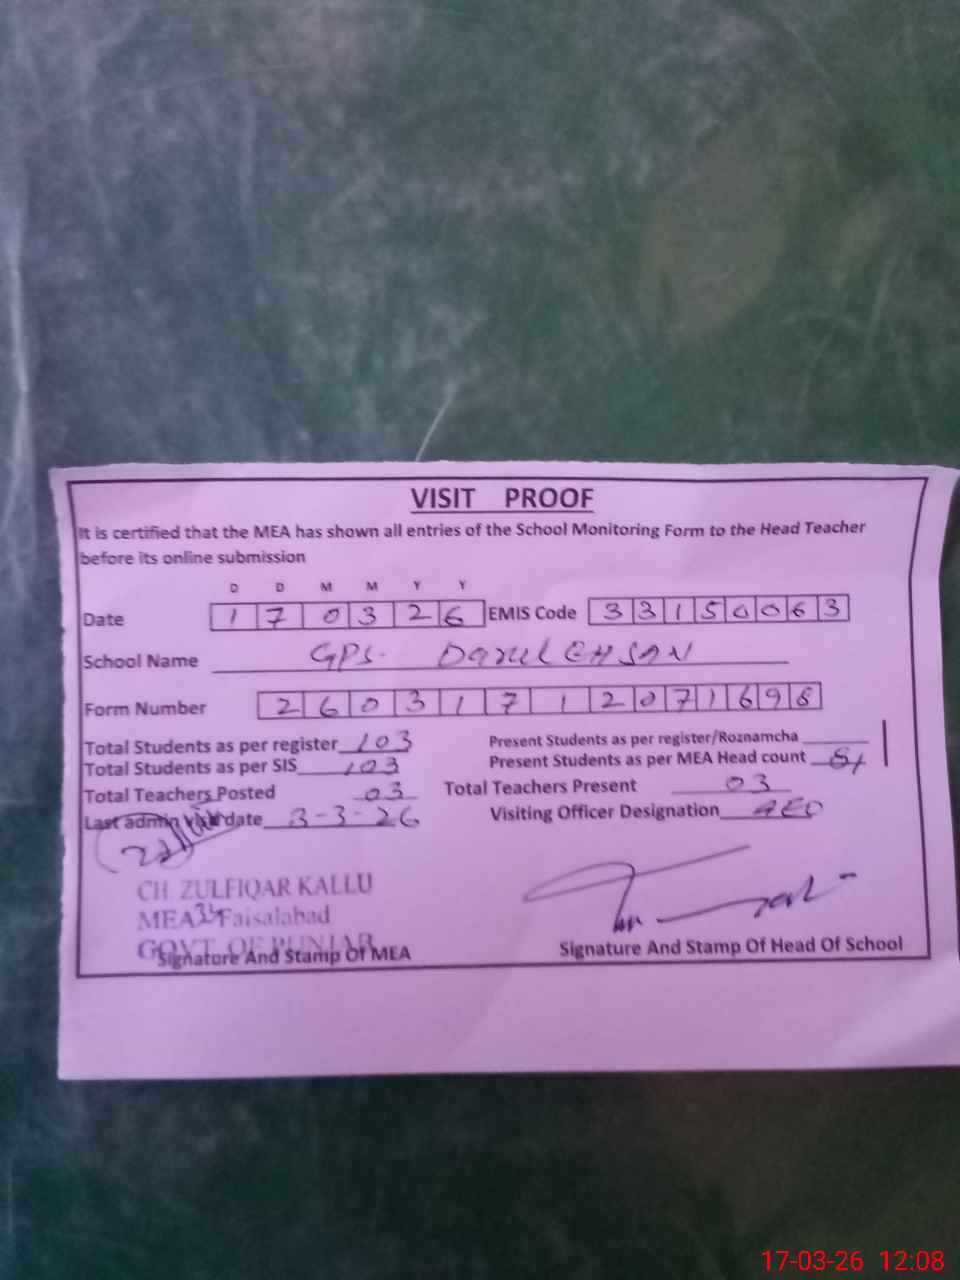 VISIT PROOF
It is certified that the MEA has shown all entries of the School Monitoring Form to the Head Teacher
before its online submission
D D M M Y Y
Date 1 7 0 3 2 6 EMIS Code 3 3 1 5 0 0 6 3
School Name GPS. Darul EHSAN
Form Number 2 6 0 3 1 7 1 2 0 7 1 6 9 8
Total Students as per register 103 Present Students as per register/Roznamcha
Total Students as per SIS 103 Present Students as per MEA Head count
Total Teachers Posted 03 Total Teachers Present 03
Last admin visit date 3-3-26 Visiting Officer Designation AEO
CH. ZULFIQAR KALLU
MEA Faisalabad
GOVT. OF PUNJAB
Signature And Stamp Of MEA Signature And Stamp Of Head Of School
17-03-26 12:08